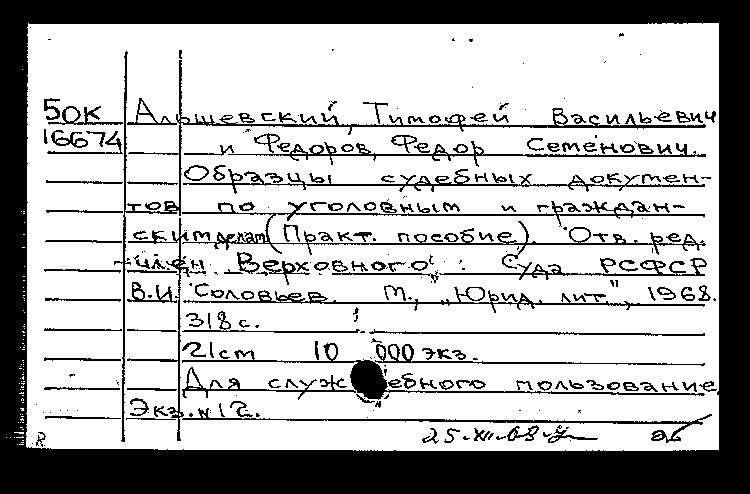 50К Альшевский, Тимофей Васильевич
16674 и Федоров, Федор Семенович.
Образцы судебных докумен-
тов по уголовным и граждан-
ским делам (Практ. пособие). Отв. ред.
-член Верховного Суда РСФСР
В.И. Соловьев. М., „Юрид. лит", 1968.
318 с.
21cm 10 000 экз.
Для служебного пользование
Экз. N 12.
R 25.XII.68